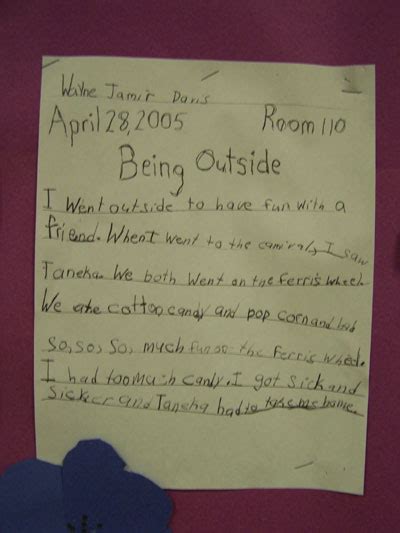 Wayne Jamir Davis
April 28, 2005 Room 110
Being Outside
I Went outside to have fun with a
friend. When I went to the carnival, I saw
Taneka. We both went on the ferris wheel.
We ate cottoo candy and pop corn and had
so, so, so, much fun on the ferris wheel.
I had too much candy. I got sick and
sicker and Taneka had to take me home.